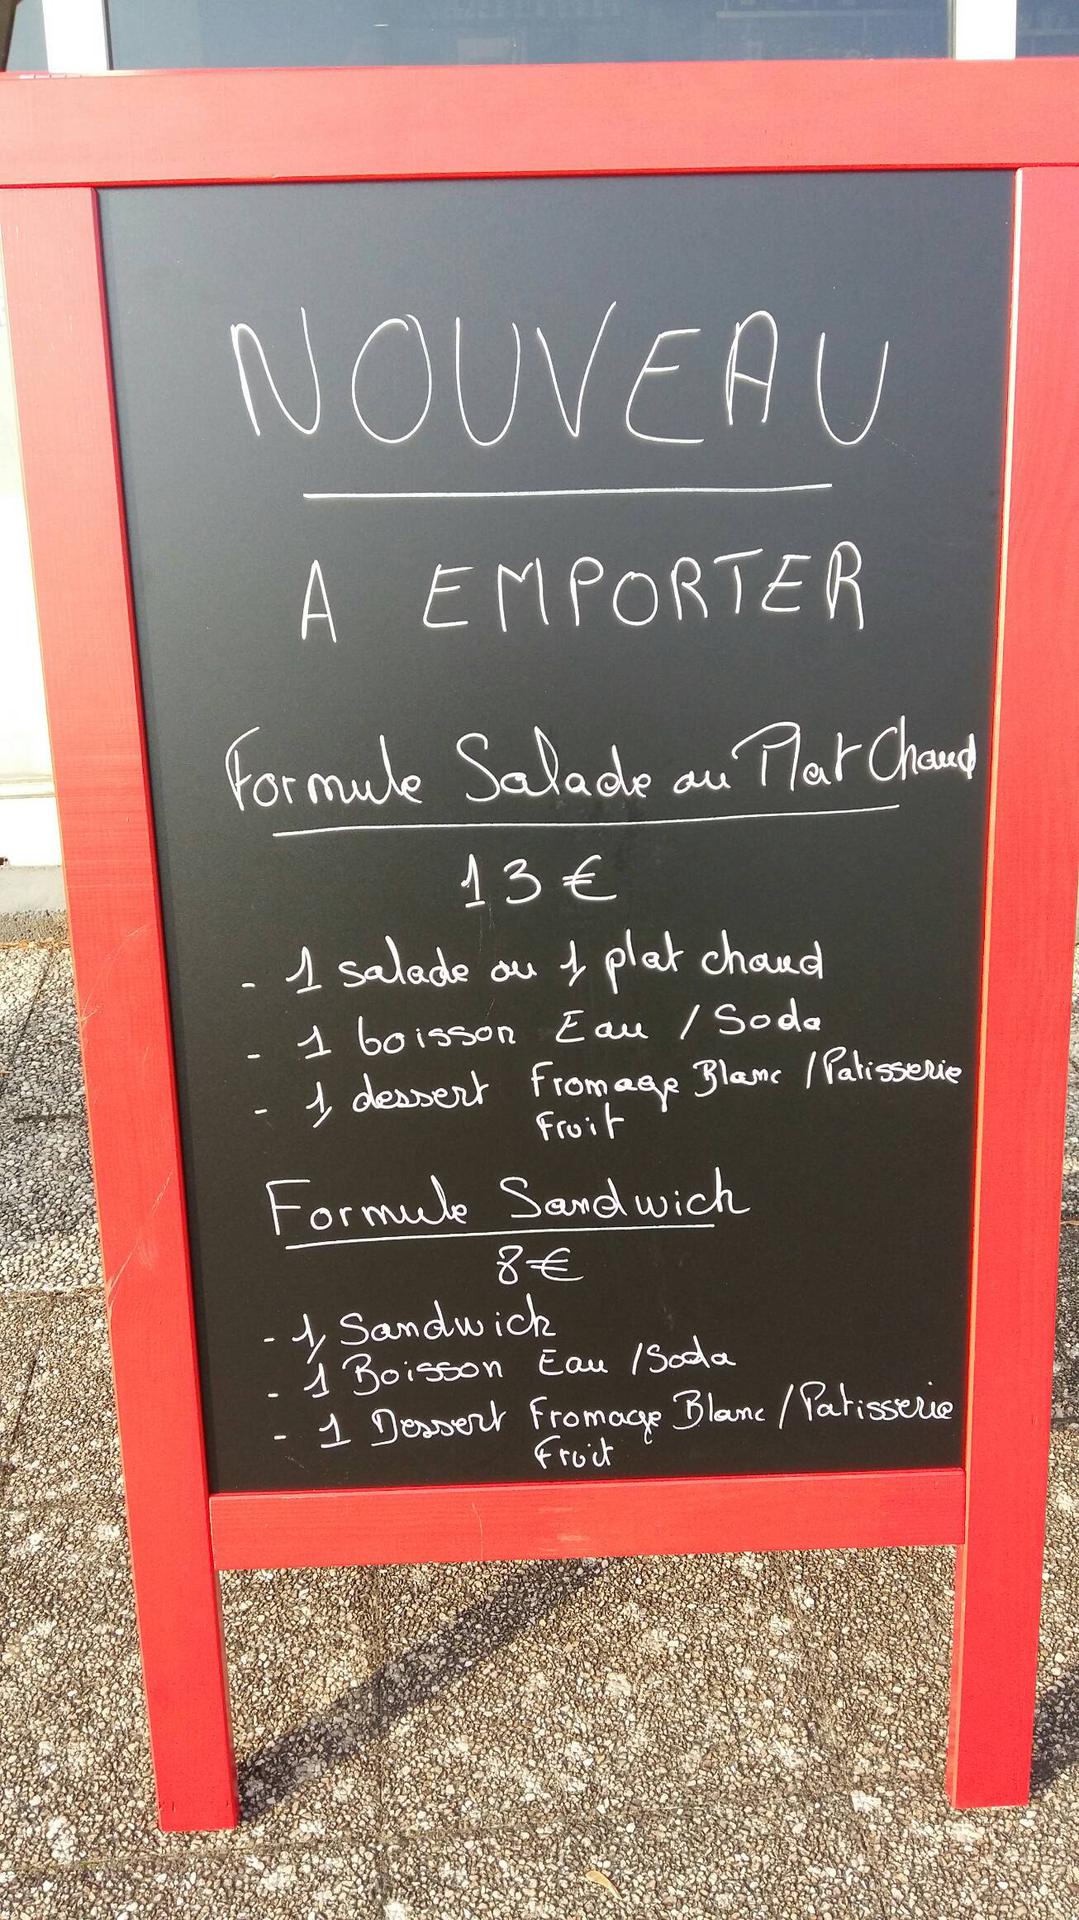 NOUVEAU
A EMPORTER
Formule Salade ou Plat Chaud
13 €
- 1 salade ou 1 plat chaud
- 1 boisson Eau / Soda
- 1 dessert Fromage Blanc / Patisserie
Fruit
Formule Sandwich
8 €
- 1 Sandwich
- 1 Boisson Eau / Soda
- 1 Dessert Fromage Blanc / Patisserie
Fruit